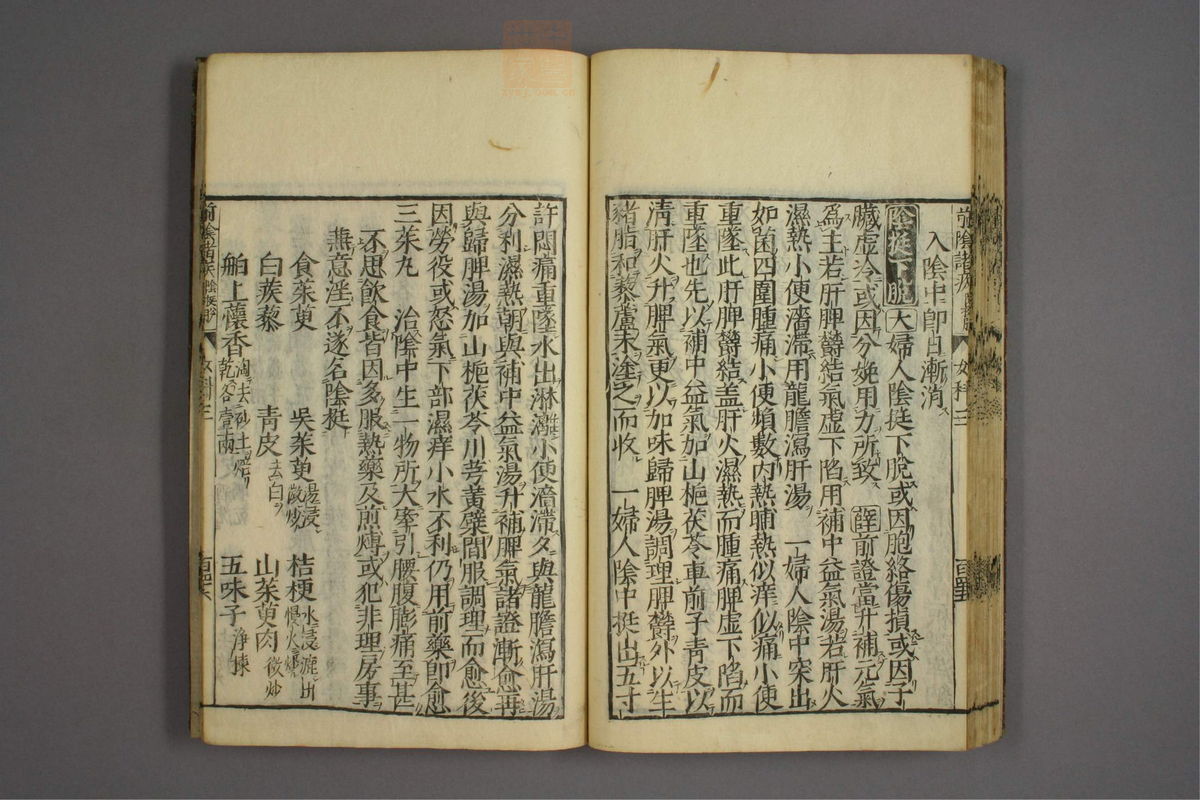 入陰中即日漸消
陰挺下脫 大 婦人陰挺下脫或因胞絡傷損或因子
臟虛冷或因分娩用力所致 薛 前證當升補元氣
爲主若肝脾鬱結氣虛下陷用補中益氣湯若肝火
濕熱小便濇滯用龍膽瀉肝湯 一婦人陰中突出
如菌四圍腫痛小便頻數内熱晡熱似痒似痛小便
重墜此肝脾鬱結盖肝火濕熱而腫痛脾虛下陷而
重墜也先以補中益氣加山梔茯苓車前子青皮以
清肝火升脾氣更以加味歸脾湯調理脾鬱外以生
猪脂和藜蘆末塗之而收 一婦人陰中挺出五寸
許悶痛重墜水出淋漓小便濇滯夕與龍膽瀉肝湯
分利濕熱朝與補中益氣湯升補脾氣諸證漸愈再
與歸脾湯加山梔茯苓川芎黃蘗間服調理而愈後
因勞役或怒氣下部濕痒小水不利仍用前藥即愈
三茱丸 治陰中生一物所大牽引腰腹膨痛至甚
不思飲食皆因多服熱藥及煎煿或犯非理房事
兼意淫不遂名陰挺
食茱萸 吳茱萸湯浸微炒 桔梗水浸漉出慢火炒
白蒺藜 青皮去白 山茱萸肉微炒
舶上懷香淘去砂土焙乾各壹兩 五味子淨揀